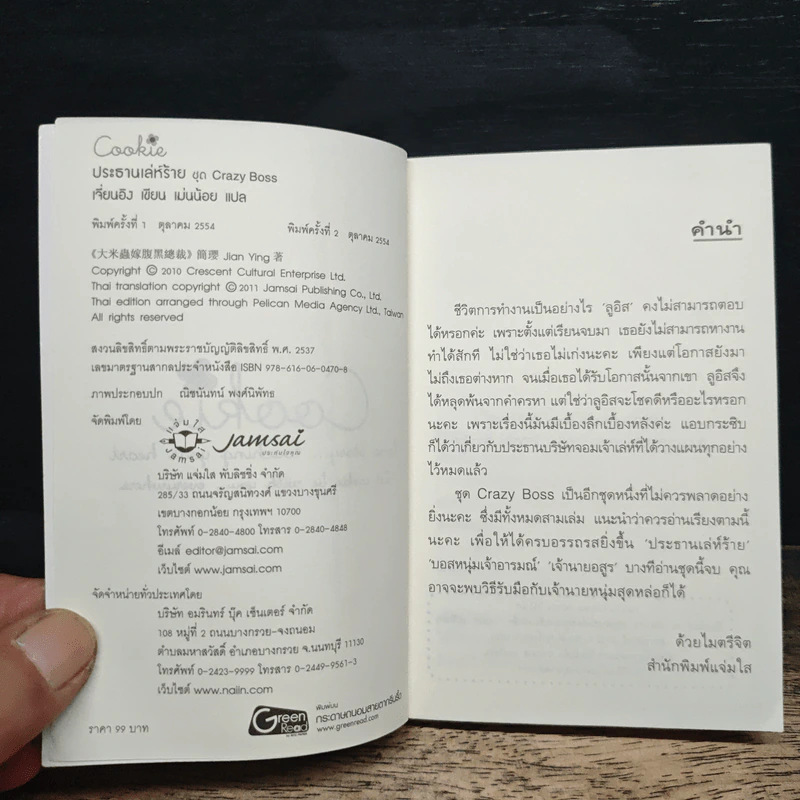 Cookie
ประธานเล่ห์ร้าย ชุด Crazy Boss
เจี่ยนอิง เขียน เม่นน้อย แปล
พิมพ์ครั้งที่ 1 ตุลาคม 2554 พิมพ์ครั้งที่ 2 ตุลาคม 2554
《大米蟲嫁腹黑總裁》簡瓔 Jian Ying 著
Copyright © 2010 Crescent Cultural Enterprise Ltd.
Thai translation copyright © 2011 Jamsai Publishing Co., Ltd.
Thai edition arranged through Pelican Media Agency Ltd., Taiwan
All rights reserved
สงวนลิขสิทธิ์ตามพระราชบัญญัติลิขสิทธิ์ พ.ศ. 2537
เลขมาตรฐานสากลประจำหนังสือ ISBN 978-616-06-0470-8
ภาพประกอบปก ณิชนันทน์ พงศ์นิพัทธ
จัดพิมพ์โดย
แจ่มใส
Jamsai
Jamsai
ประทับใจคุณ
บริษัท แจ่มใส พับลิชชิ่ง จำกัด
285/33 ถนนจรัญสนิทวงศ์ แขวงบางขุนศรี
เขตบางกอกน้อย กรุงเทพฯ 10700
โทรศัพท์ 0-2840-4800 โทรสาร 0-2840-4848
อีเมล์ editor@jamsai.com
เว็บไซต์ www.jamsai.com
จัดจำหน่ายทั่วประเทศโดย
บริษัท อมรินทร์ บุ๊ค เซ็นเตอร์ จำกัด
108 หมู่ที่ 2 ถนนบางกรวย-จงถนอม
ตำบลมหาสวัสดิ์ อำเภอบางกรวย จ.นนทบุรี 11130
โทรศัพท์ 0-2423-9999 โทรสาร 0-2449-9561-3
เว็บไซต์ www.naiin.com
ราคา 99 บาท
Green Read
พิมพ์บน
กระดาษถนอมสายตากรีนรี้ด
www.greenread.com
คำนำ
ชีวิตการทำงานเป็นอย่างไร 'ลูอิส' คงไม่สามารถตอบ
ได้หรอกค่ะ เพราะตั้งแต่เรียนจบมา เธอยังไม่สามารถหางาน
ทำได้สักที ไม่ใช่ว่าเธอไม่เก่งนะคะ เพียงแต่โอกาสยังมา
ไม่ถึงเธอต่างหาก จนเมื่อเธอได้รับโอกาสนั้นจากเขา ลูอิสจึง
ได้หลุดพ้นจากคำครหา แต่ใช่ว่าลูอิสจะโชคดีหรืออะไรหรอก
นะคะ เพราะเรื่องนี้มันมีเบื้องลึกเบื้องหลังค่ะ แอบกระซิบ
ก็ได้ว่าเกี่ยวกับประธานบริษัทจอมเจ้าเล่ห์ที่ได้วางแผนทุกอย่าง
ไว้หมดแล้ว
ชุด Crazy Boss เป็นอีกชุดหนึ่งที่ไม่ควรพลาดอย่าง
ยิ่งนะคะ ซึ่งมีทั้งหมดสามเล่ม แนะนำว่าควรอ่านเรียงตามนี้
นะคะ เพื่อให้ได้ครบอรรถรสยิ่งขึ้น 'ประธานเล่ห์ร้าย'
'บอสหนุ่มเจ้าอารมณ์' 'เจ้านายอสูร' บางทีอ่านชุดนี้จบ คุณ
อาจจะพบวิธีรับมือกับเจ้านายหนุ่มสุดหล่อก็ได้
ด้วยไมตรีจิต
สำนักพิมพ์แจ่มใส